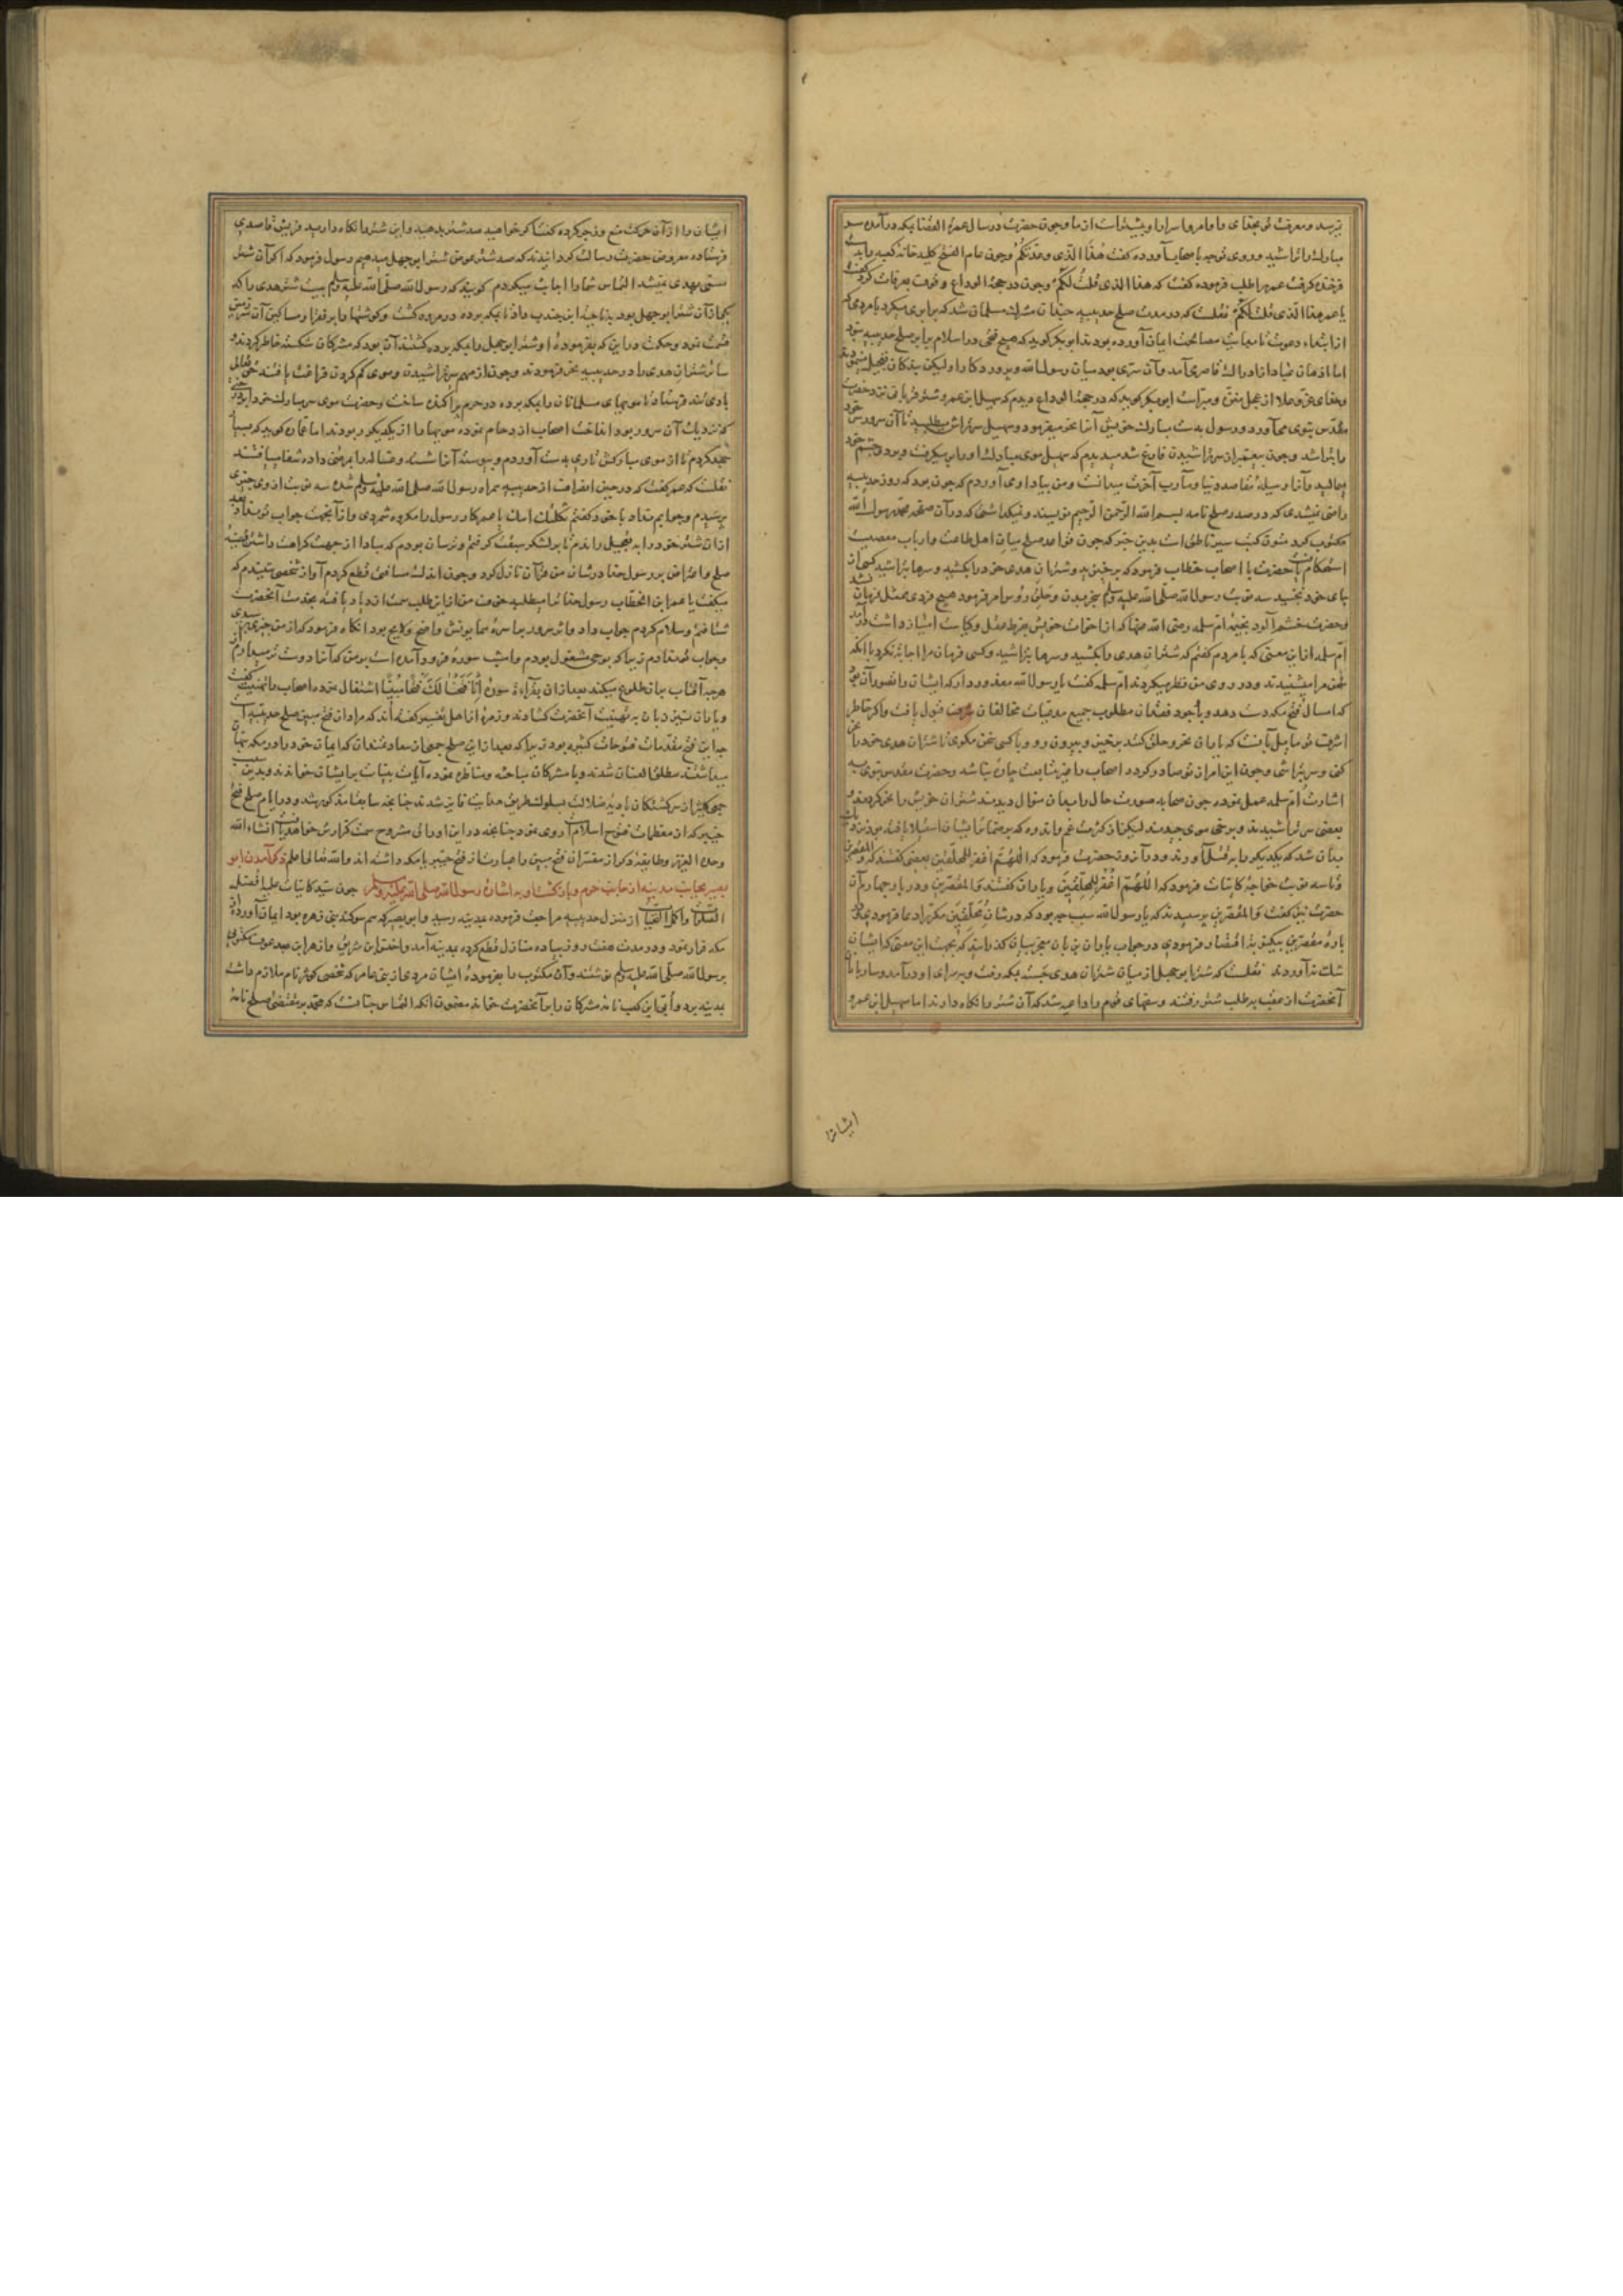 مبارک را تراشید و روی توجه باصحاب آورده کفت هذا الذی وعدتکم و چون عام الفتح کلید خانه کعبه را بدست
فرخنده کرفت عمر را طلب فرموده کفت که هذا الذی قلت لکم و چون در حجة الوداع وقوف بعرفات کرد کفت
یا عمر هذا الذی قلت لکم نقلست که در مدت صلح حدیبیه چندان مشرک مسلمان شد که برابری میکرد با مردمی که
از ابتداء دعوت تا مصالحت ایمان آورده بودند ابو بکر کوید که هیچ فتحی در اسلام برابر صلح حدیبیه نبود
اما اذهان عباد از ادراک قاصر می آمد و آن سری بود میان رسول الله و پروردکار او لیکن بندکان تعجیل مینمودند
و خدای عز و علا از عجل منزه و مبراست ابو بکر کوید که در حجة الوداع دیدم که سهیل ابن عمرو شتر قربانی نزد حضرت
مقدس نبوی می آورد و رسول بدست مبارک خویش آنرا نحر میفرمود و سهیل سرتراش میطلبید تا آن سرور سر خود
را تراشد و چون پیغمبر از سر تراشیدن فارغ شد میدیدم که سهیل موی مبارک او را برمیکرفت و بر دو چشم خود
میمالید و آنرا وسیله مقاصد دنیا و مآرب آخرت میدانست و من بیاد او می آوردم که چون بود که روز حدیبیه
راضی نمیشدی که در صدر صلح نامه بسم الله الرحمن الرحیم نویسند و نمیکذاشتی که در آن صحیفه محمد رسول الله
مکتوب کردد متون کتب سیر ناطق است بدین خبر که چون قواعد صلح میان اهل طاعت و ارباب معصیت
استحکام یافت حضرت با اصحاب خطاب فرمود که برخیزید و شتران هدی خود را بکشید و سرها بتراشید کسی از
جای خود نجنبید سه نوبت رسول الله صلی الله علیه وسلم بنحر بدن و حلق رؤس امر فرمود هیچ فردی ممتثل فرمان نشد
و حضرت خشم آلود بخیمه ام سلمه رضی الله عنها که از اخوات خویش بفرط عقل و کیاست امتیاز داشت درآمد
ام سلمه از این معنی که با مردم کفتم که شتران هدی را بکشید و سرها بتراشید و کسی فرمان مرا اجابة نکرد با آنکه
سخن مرا میشنیدند و در روی من نظر میکردند ام سلمه کفت یا رسول الله معذور دار که ایشان را تصور آن بود
که امسال فتح مکه دست دهد و با وجود فقدان مطلوب جمیع مدعیات مخالفان شرف قبول یافت و اکر خاطر
اشرف تو مایل بآنست که یاران نحر و حلق کنند برخیز و بیرون رو و با کسی سخن مکوی تا شتران هدی خود را نحر
کنی و سر بتراشی و چون این امر از تو صادر کردد اصحاب را غیر متابعت چاره نباشد و حضرت مقدس نبوی به
اشارت ام سلمه عمل نموده چون صحابه صورت حال را بدان منوال دیدند شتران خویش را نحر کردند و
بعضی سر تراشیدند و برخی موی چیدند لیکن از کثرت غم و اندوه که بر ضمائر ایشان استیلا یافته بود نزدیک
بدان شد که یکدیکر را بقتل آورند و در آن روز حضرت فرمود که اللهم اغفر للمحلقین بعضی کفتند که و المقصرین
تا سه نوبت خواجه کاینات فرمود که اللهم اغفر للمحلقین و یاران کفتند و المقصرین و در بار چهارم آن
حضرت نیز کفت و المقصرین پرسیدند که یا رسول الله سبب چه بود که در شان محلقین مکرر ادعا فرمودی و در
باره مقصرین بیکبار اقتصار فرمودی در جواب یاران بزبان معجز بیان کذرانید که بجهت این معنی که ایشان
شک نیاوردند نقلست که شتر ابو جهل از میان شتران هدی جسته بمکه رفت و بسرای او درآمد و ساربانان
آنحضرت از عقب بطلب شتر رفتند و سفهای قوم را داعیه شد که آن شتر را نکاه دارند اما سهیل ابن عمرو
ایشانرا
ایشان را از آن حرکت منع و زجر کرده کفت اکر خواهید صد شتر بدهید و این شتر را نکاه دارید قریش قاصدی
فرستاده معروض حضرت رسالت کردانیدند که صد شتر عوض شتر ابو جهل میدهیم رسول فرمود که اکر آن شتر
مسمی بهدی نمیشد التماس شما را اجابت میکردم کویند که رسول الله صلی الله علیه وسلم بیست شتر هدی را که
یکی از آن شتر ابو جهل بود بناجیة ابن جندب داد تا بمکه برده در مروه کشت و کوشتها را بر فقرا و مساکین آن
قسمت نمود و حکمت در این که بفرموده او شتر ابو جهل را بمکه برده کشتند آن بود که مشرکان شکسته خاطر کردند و
سائر شتران هدی را در حدیبیه نحر فرمودند و چون از مهم سر تراشیدن و موی کم کردن فراغت یافتند حق تعالی
بادی تند فرستاد تا مویهای مسلمانان را بمکه برده در حرم پراکنده ساخت و حضرت موی سر مبارک خود را بر درختی
که نزدیک آن سرور بود انداخت اصحاب ازدحام نموده مویها را از یکدیکر ربودند ام عماره کوید که
جهد کردم تا از موی مبارکش تاری بدست آوردم و پیوسته آنرا شسته و غساله را بمرضی داده شفا مییافتند
نقلست که عمر کفت که در حین انصراف از حدیبیه همراه رسول الله صلی الله علیه وسلم شده سه نوبت از وی چیزی
پرسیدم و جوابم نداد با خود کفتم ثکلتک امک یا عمر کار رسول را مکروه شمردی و از آنجهت جواب تو نداد بعد
از آن شتر خود را به تعجیل راندم تا بر لشکر سبقت کرفتم و ترسان بودم که مبادا از جهت کراهت داشتن قضیه
صلح و اعتراض بر رسول خدا در شان من قرآن نازل کردد و چون اندک مسافتی قطع کردم آواز شخصی شنیدم که
میکفت یا عمر ابن الخطاب رسول خدا ترا میطلبد خوف من از این طلب سمت ازدیاد یافته بخدمت آنحضرت
شتافتم و سلام کردم جواب داد و اثر سرور بر ناصیه همایونش واضح و لایح بود انکاه فرمود که از من چیزی پرسیدی
و جواب تو ندادم زیرا که بوحی مشغول بودم و امشب سوره فرود آمده است بر من که آنرا دوست تر میدارم از
هرچه آفتاب بر آن طلوع میکند بعد از آن بقراءة سوره انا فتحنا لک فتحا مبینا اشتغال نموده اصحاب را تهنیت کفت
و یاران نیز زبان به تهنیت آنحضرت کشادند و زمره از اهل تفسیر کفته اند که مراد از فتح مبین صلح حدیبیه است
چه این فتح مقدمات فتوحات کثیره بود زیرا که بعد از این صلح جمعی از سعادتمندان که ایمان خود را در مکه پنهان
میداشتند مطلق العنان شدند و با مشرکان مباحثه و مناظره نموده آیات بینات بر ایشان خواندند و بدین سبب
جمعی کثیر از سرکشتکان بادیه ضلالت بسلوک طریق هدایت فایز شدند چنانچه سابقا مذکور شد و در ایام صلح فتح
خیبر که از معظمات فتوح اسلام است روی نمود چنانچه در این اوراق مشروح سمت کزارش خواهد یافت انشاء الله
وحده العزیز و طایفه دیکر از مفسران فتح مبین را عبارت از فتح خیبر یا مکه داشته اند والله تعالی اعلم ذکر آمدن ابو
بصیر بجانب مدینه از جانب حرم و بازکشتن او به اشاره رسول الله صلی الله علیه وسلم چون سید کاینات علیه افضل
الصلوات و اکمل التحیات از منزل حدیبیه مراجعت فرموده بمدینه رسید و ابو بصیر که هم سوکند بنی زهره بود ایمان آورده از
مکه فرار نمود و در مدت هفت روز پیاده منازل قطع کرده بمدینه آمد و اخنس ابن شریق و ازهر ابن عبد عوف مکتوبی
برسول الله صلی الله علیه وسلم نوشتند و آن مکتوب را بفرموده ایشان مردی از بنی عامر که شخصی کوثر نام ملازم داشت
بمدینه برد و ابی ابن کعب نامه مشرکان را بر آنحضرت خواند مضمون آنکه التماس چنانست که محمد بر مقتضی صلح نامه